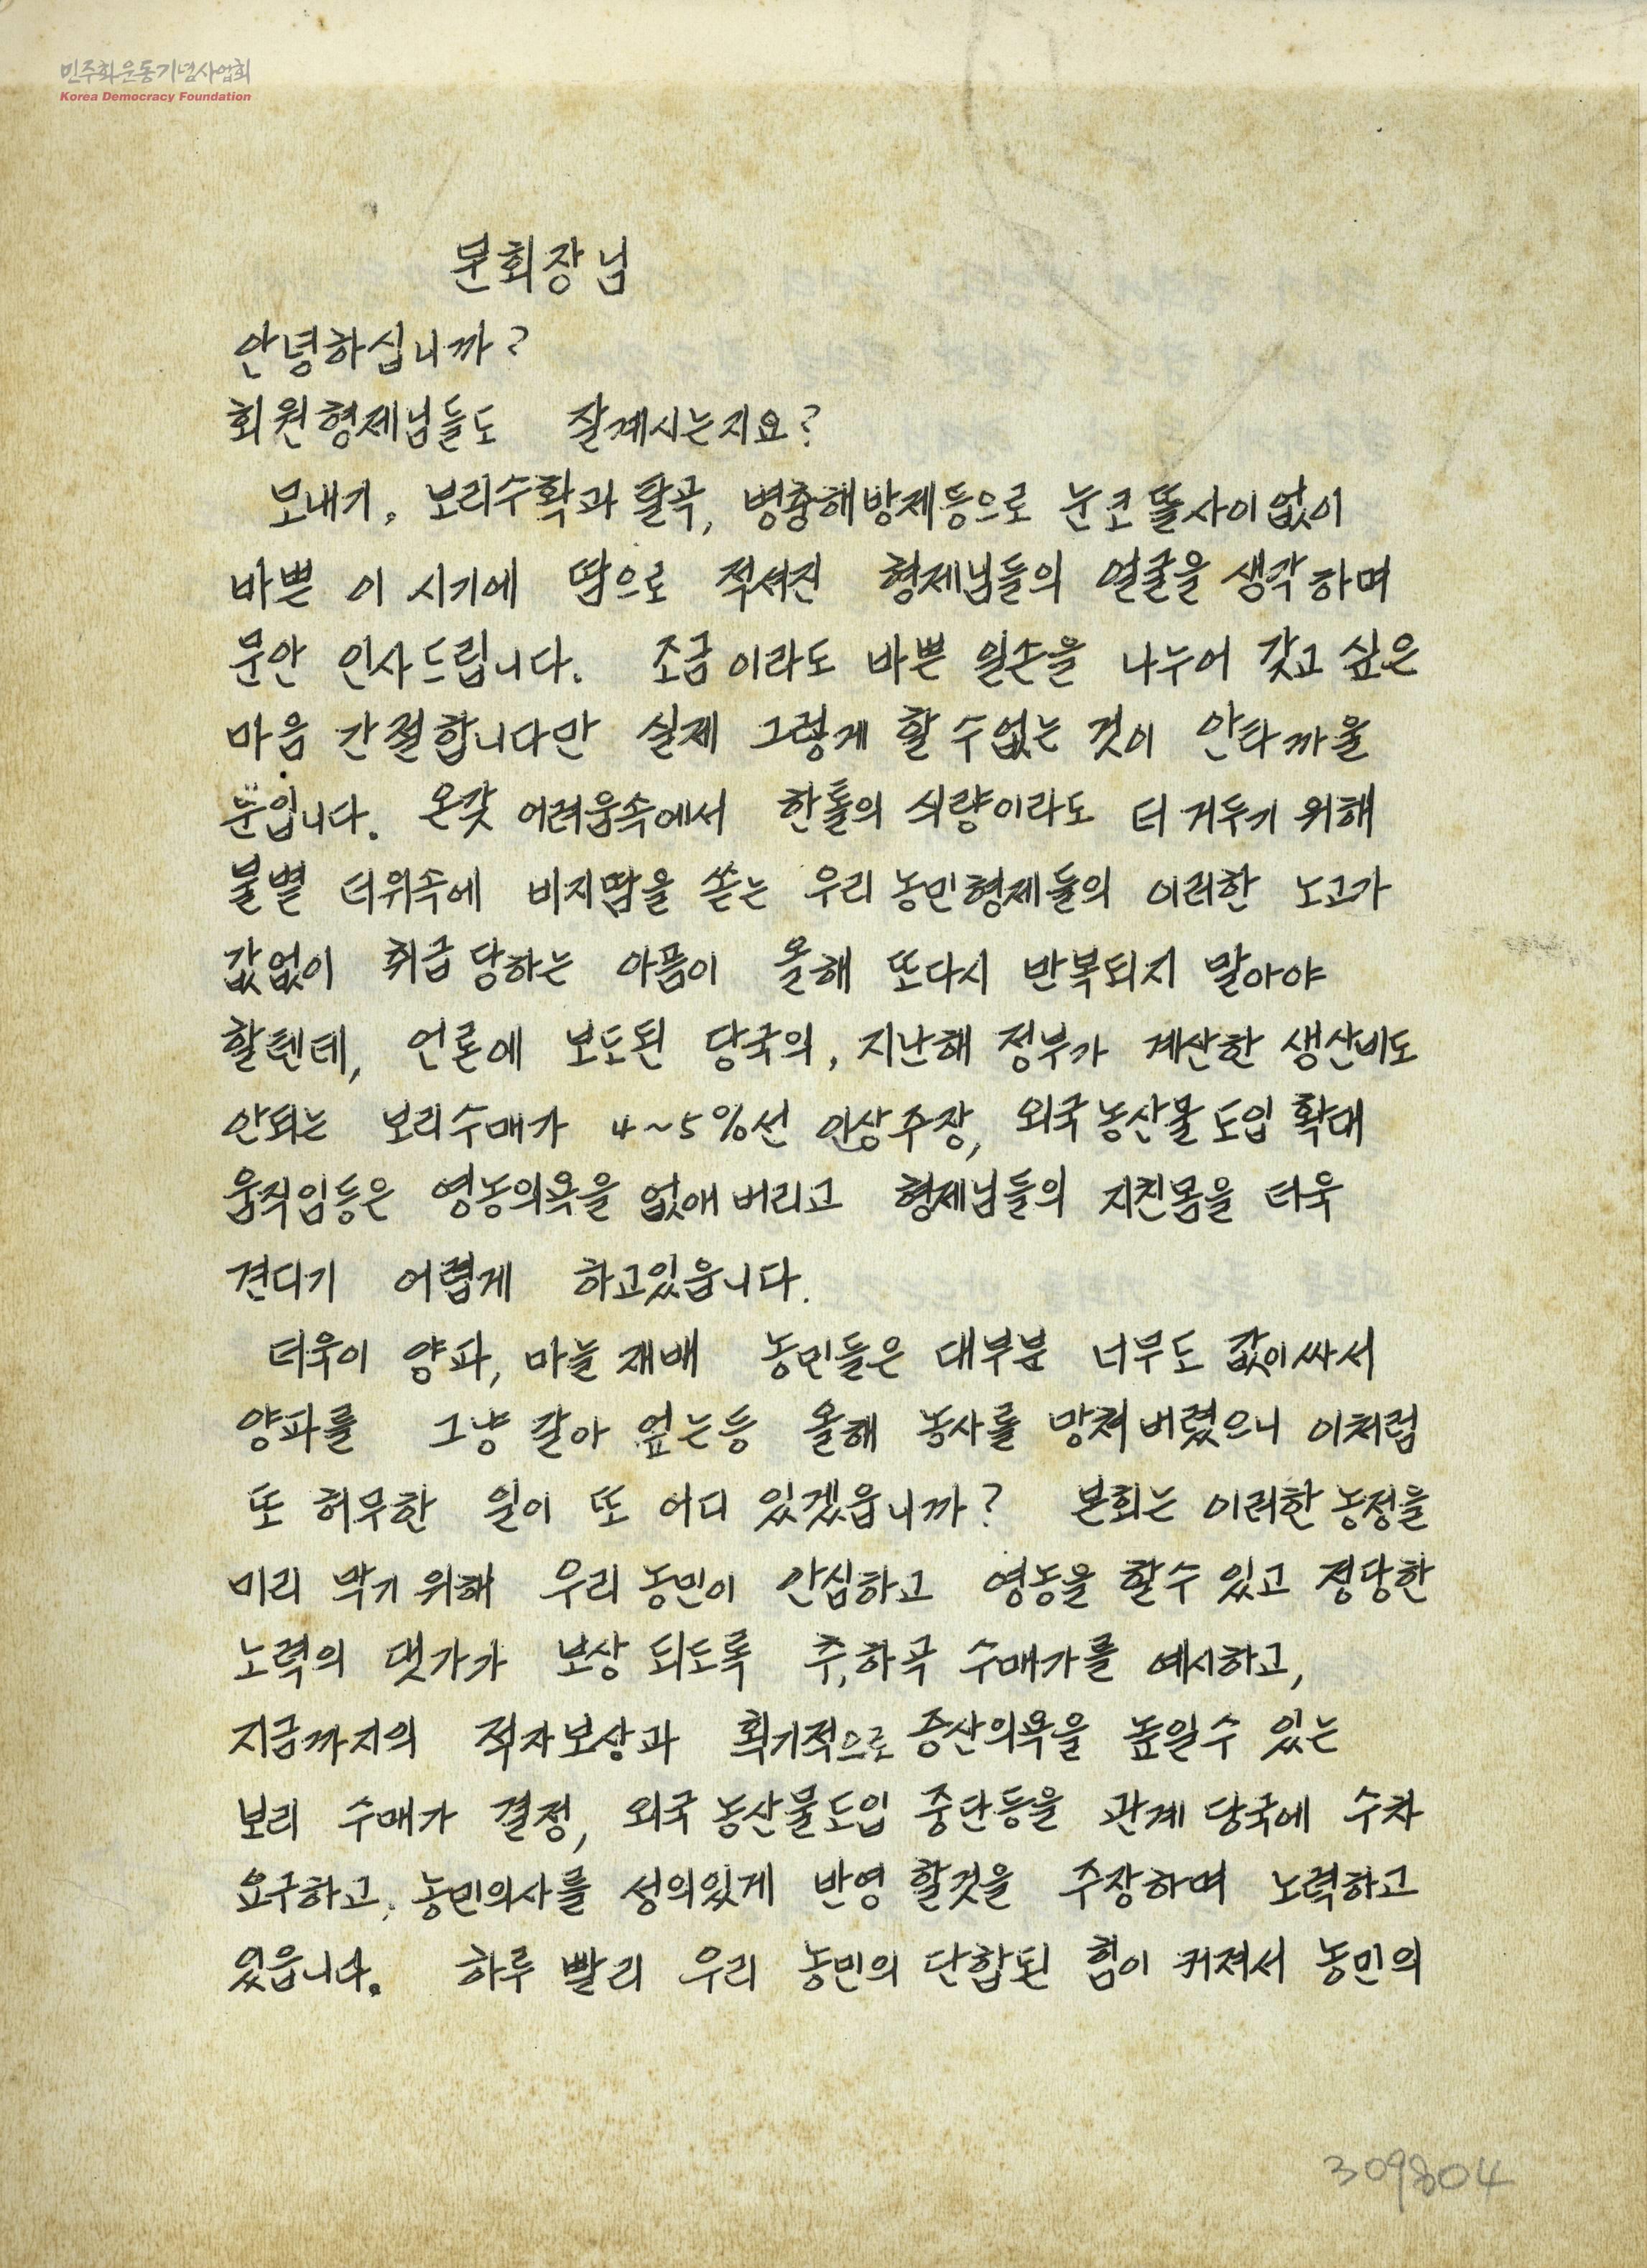 민주화운동기념사업회
Korea Democracy Foundation
분회장님
안녕하십니까?
회원형제님들도 잘계시는지요?
모내기, 보리수확과 탈곡, 병충해방제등으로 눈코뜰사이없이
바쁜 이 시기에 땀으로 적셔진 형제님들의 얼굴을 생각하며
문안 인사드립니다. 조금이라도 바쁜 일손을 나누어 갖고 싶은
마음 간절합니다만 실제 그렇게 할 수없는 것이 안타까울
뿐입니다. 온갖 어려움속에서 한톨의 식량이라도 더 거두기 위해
불볕 더위속에 비지땀을 쏟는 우리 농민형제들의 이러한 노고가
값없이 취급 당하는 아픔이 올해 또다시 반복되지 말아야
할텐데, 언론에 보도된 당국의, 지난해 정부가 계산한 생산비도
안되는 보리수매가 4~5%선 인상주장, 외국농산물도입 확대
움직임등은 영농의욕을 없애버리고 형제님들의 지친몸을 더욱
견디기 어렵게 하고있읍니다.
더욱이 양파, 마늘 재배 농민들은 대부분 너무도 값이싸서
양파를 그냥 갈아 엎는등 올해 농사를 망쳐버렸으니 이처럼
또 허무한 일이 또 어디 있겠읍니까? 본회는 이러한 농정을
미리 막기 위해 우리 농민이 안심하고 영농을 할수 있고 정당한
노력의 댓가가 보상 되도록 추,하곡 수매가를 예시하고,
지금까지의 적자보상과 획기적으로 증산의욕을 높일수 있는
보리 수매가 결정, 외국 농산물도입 중단등을 관계 당국에 수차
요구하고, 농민의사를 성의있게 반영 할것을 주장하며 노력하고
있읍니다. 하루 빨리 우리 농민의 단합된 힘이 커져서 농민의
309804